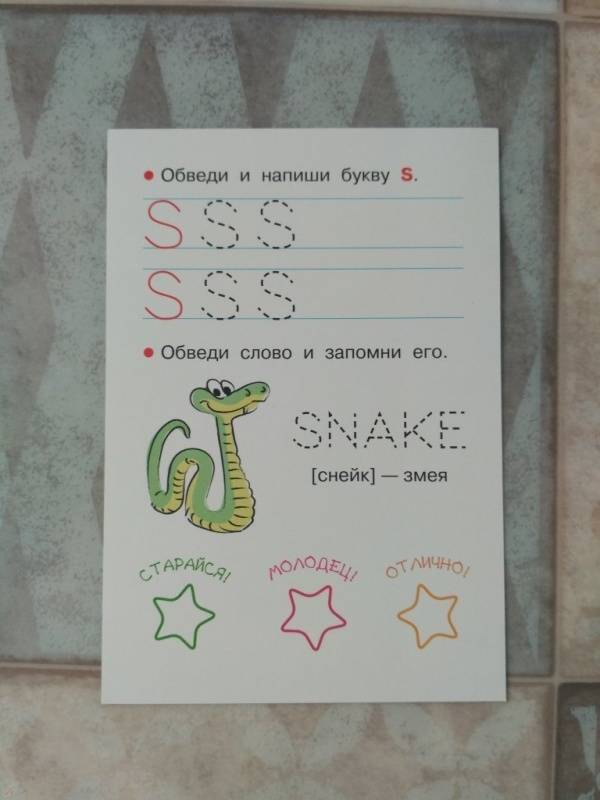 • Обведи и напиши букву S.
S S S
S S S
• Обведи слово и запомни его.
SNAKE
[снейк] — змея
СТАРАЙСЯ! МОЛОДЕЦ! ОТЛИЧНО!